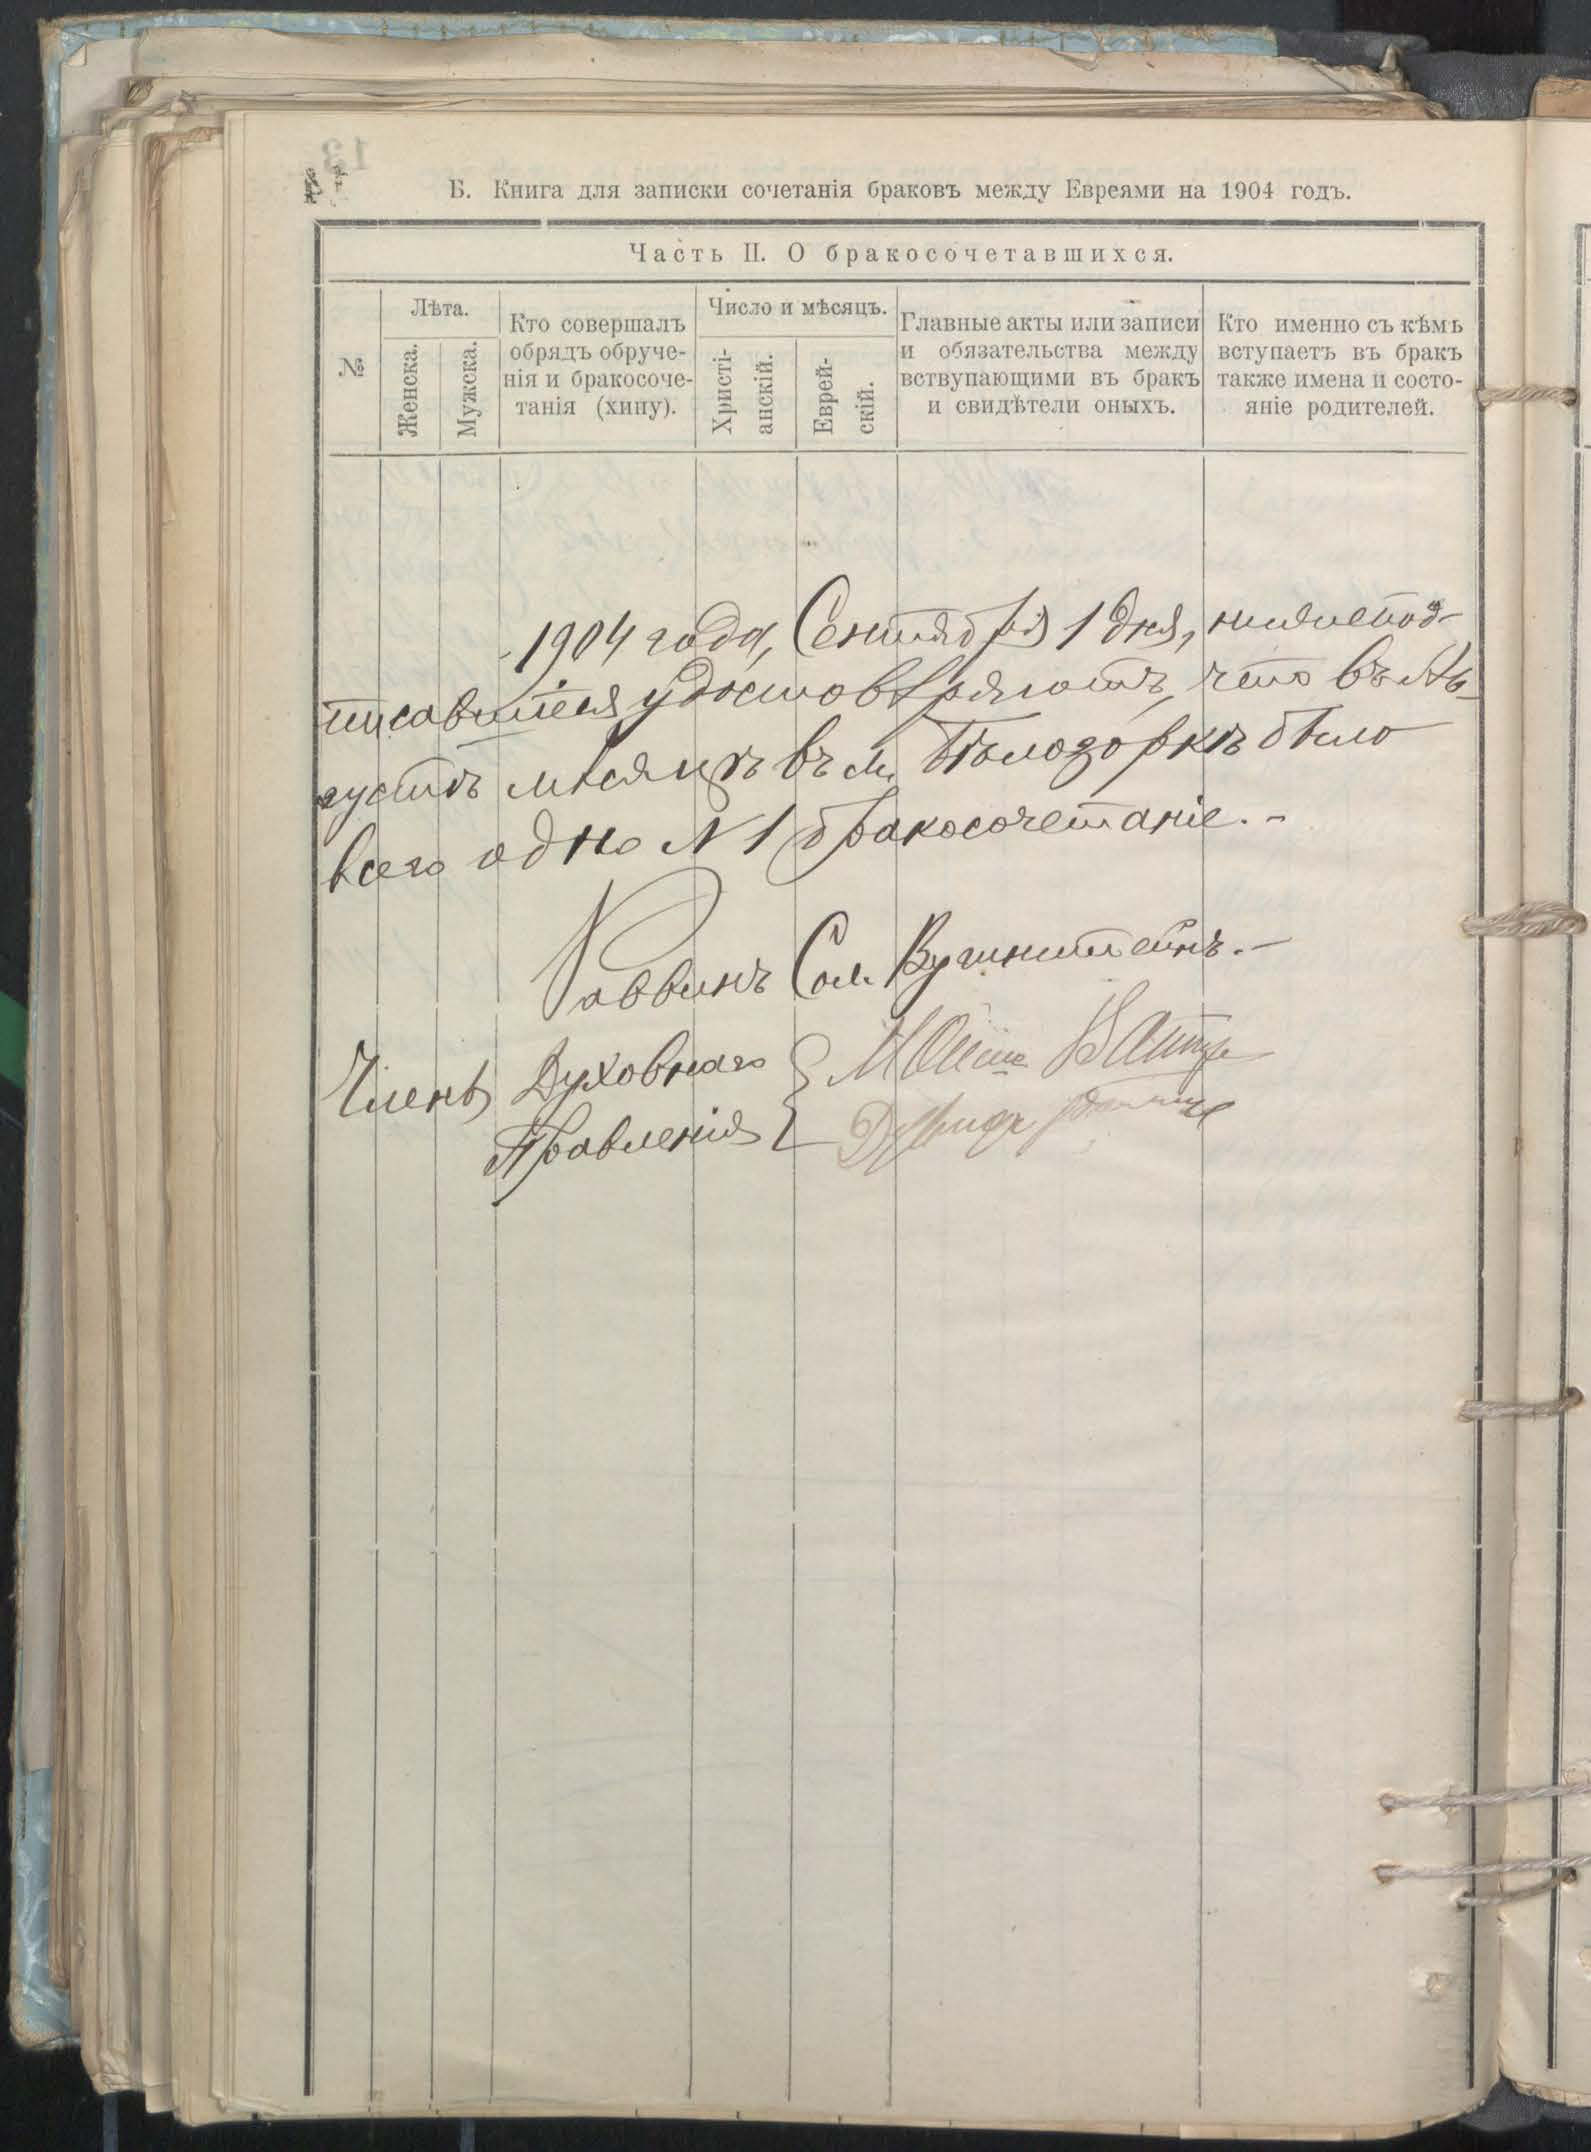 Б. Книга для записки сочетанія браковъ между Евреями на 1904 годъ.
Часть II. О бракосочетавшихся.
№
Лѣта.
Женска.
Мужска.
Кто совершалъ
обрядъ обруче-
нія и бракосоче-
танія (хипу).
Число и мѣсяцъ.
Христі-
анскій.
Еврей-
скій.
Главные акты или записи
и обязательства между
вствупающими въ бракъ
и свидѣтели оныхъ.
Кто именно съ кѣмъ
вступаетъ въ бракъ
также имена и состо-
яніе родителей.
1904 года, Сентября 1 дня, нижепод-
писавшіеся удостовѣряютъ, что въ Ав-
густѣ мѣсяцѣ въ м. Бѣлозоркѣ было
всего одно № 1 бракосочетаніе.-
Раввинъ Сол. Вугинштейнъ.-
Члены Духовнаго
Правленія